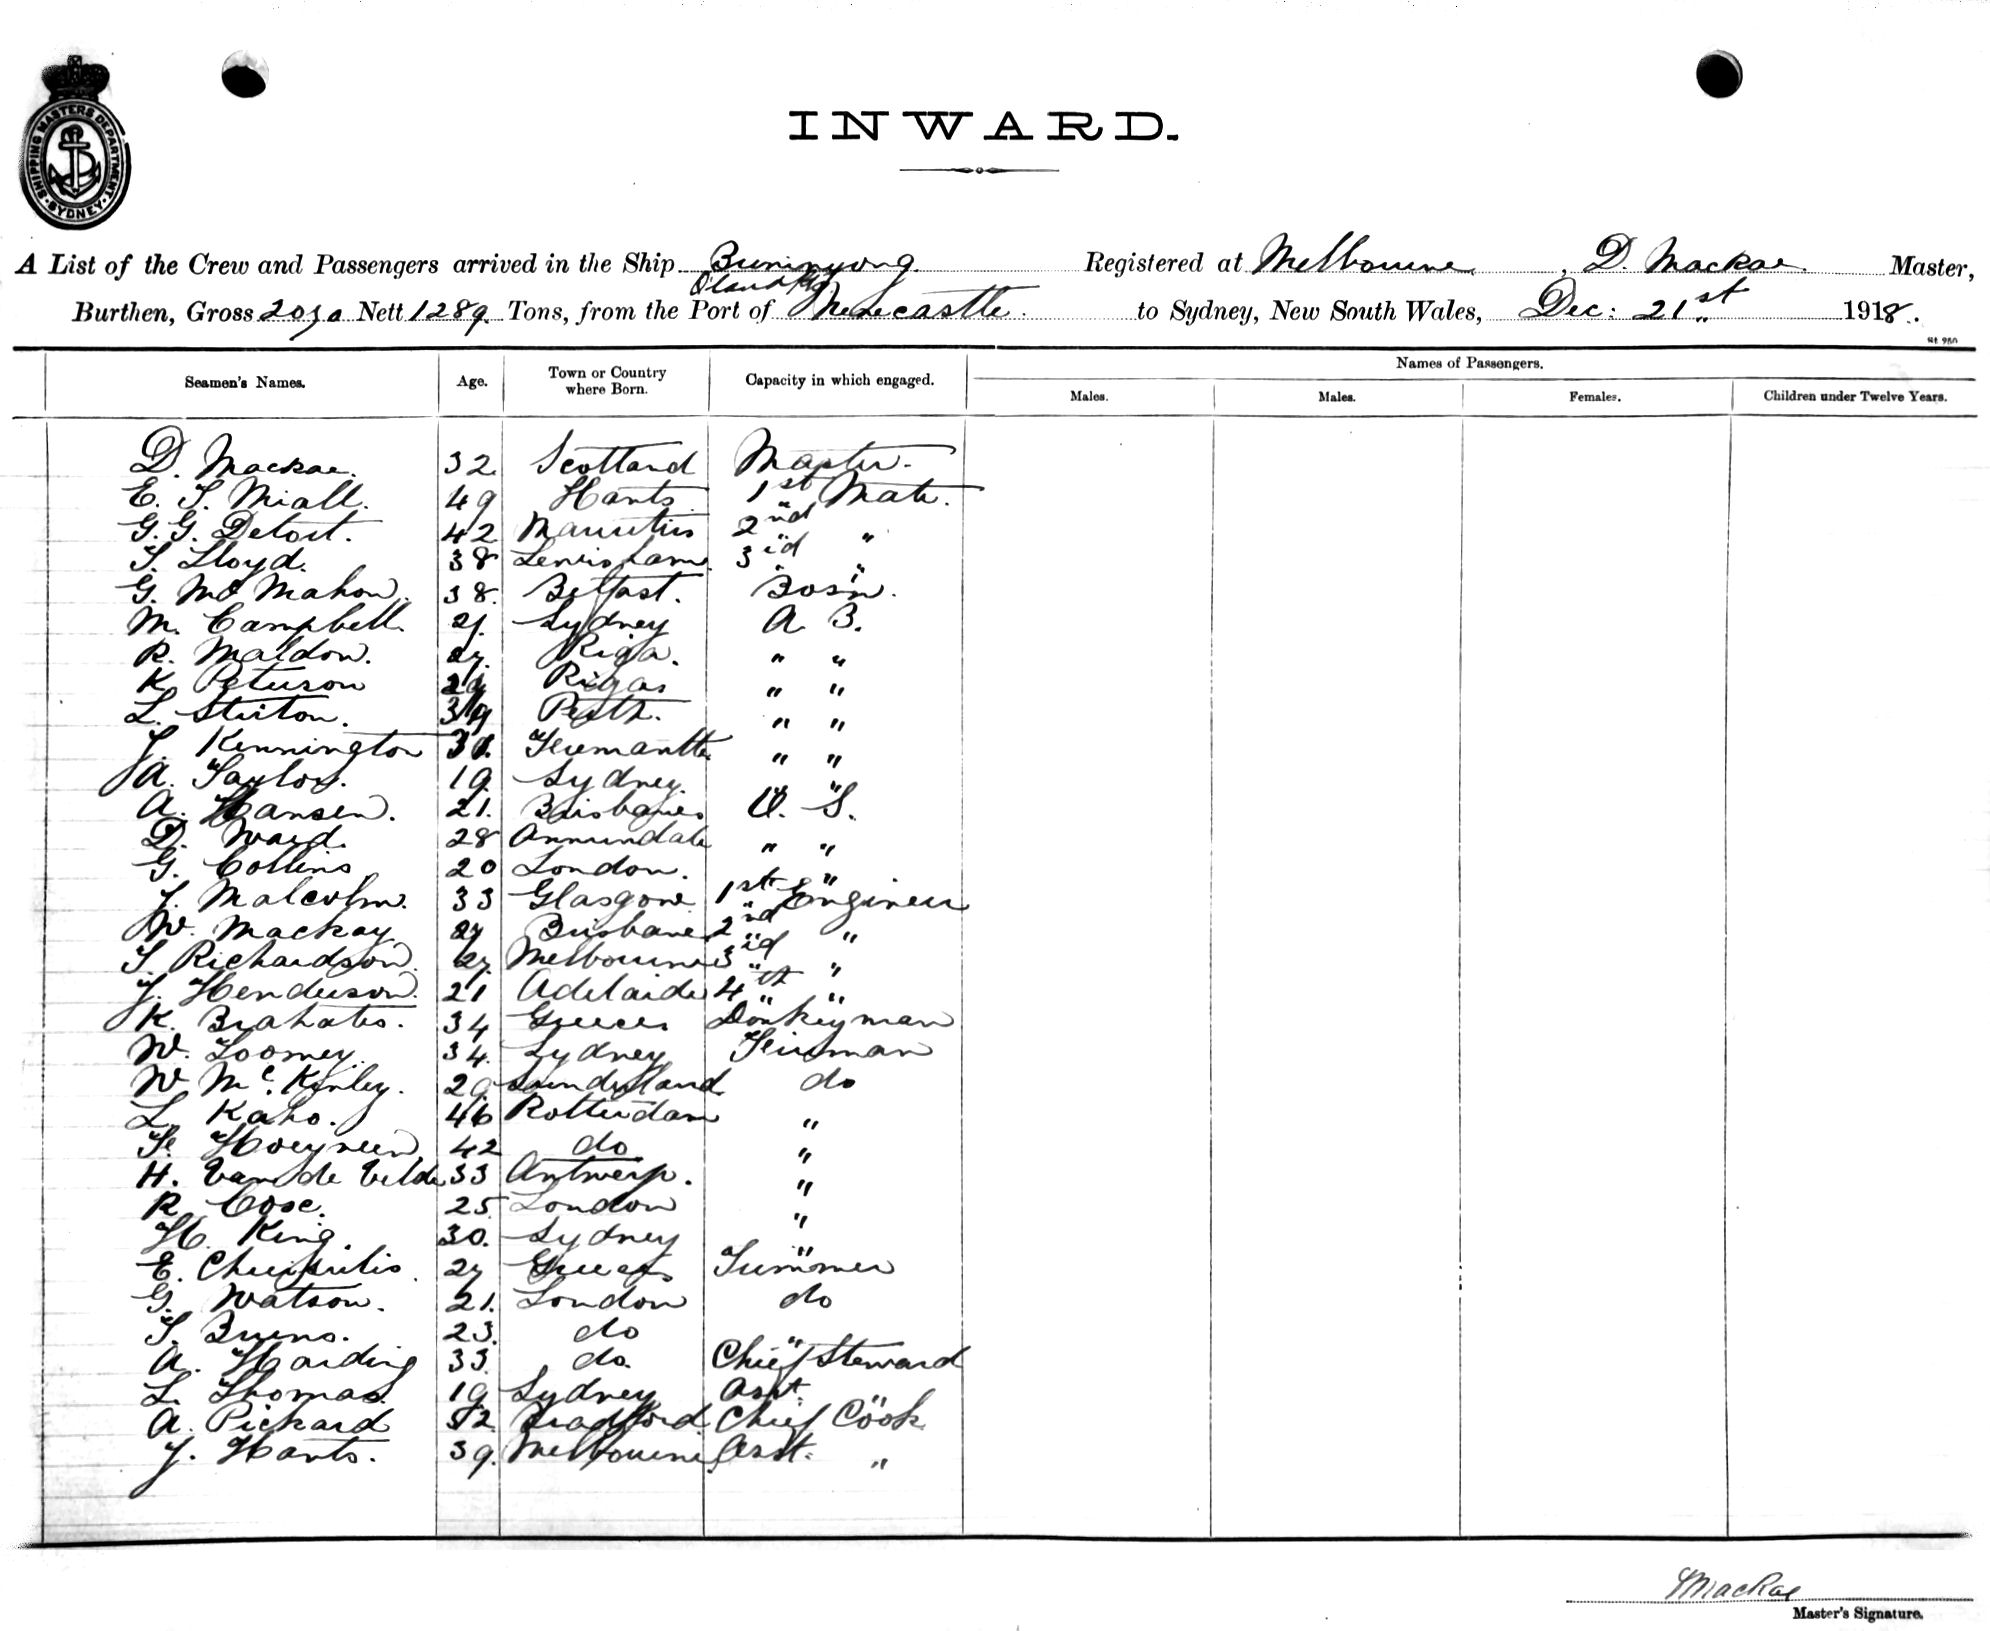 SHIPPING MASTERS DEPARTMENT
SYDNEY
INWARD.
A List of the Crew and Passengers arrived in the Ship Buninyong Registered at Melbourne, D. Mackae Master,
Burthen, Gross 2070 Nett 1289 Tons, from the Port of Newcastle to Sydney, New South Wales, Dec: 21st 1918.
St 950
Seamen's Names. Age. Town or Country where Born. Capacity in which engaged. Names of Passengers.
Males. Males. Females. Children under Twelve Years.
D. Mackae. 32 Scotland Master.
E. T. Miall. 49 Hants 1st Mate.
G. G. Detoit. 42 Mauritius 2nd "
T. Lloyd. 38 Lewisham 3rd "
G. Mc Mahon. 38. Belfast. Bos'n. "
M. Campbell. 27. Sydney A. B.
R. Maldon. 27. Riga. " "
K. Peterson Riga " "
L. Stirton. 39 Perth. " "
J. Kennington 31. Fremantle " "
A. Taylor. 19. Sydney. " "
A. Hansen. 21. Brisbane O. S.
D. Ward. 28 Annandale " "
G. Collins 20 London. " "
J. Malcolm. 33 Glasgow 1st Engineer
W. Mackay 27 Brisbane 2nd "
T. Richardson 27. Melbourne 3rd "
J. Henderson. 21 Adelaide 4th "
K. Brahatis. 34 Greece Donkeyman
W. Toomey. 34. Sydney Fireman
W. Mc. Kinley. 29 Sunderland do
L. Kaho. 46 Rotterdam "
F. Hoeyneen 42 do "
H. Van de Velde 33 Antwerp. "
R. Cose. 25 London "
H. King. 30. Sydney "
E. 27 Greece Trimmer
G. Watson. 21. London do
T. Burns. 23. do "
A. Harding 33. do. Chief Steward
L. Thomas. 19 Sydney Asst. "
A. Pickard 52 Bradford. Chief Cook
J. Hants. 39. Melbourne Asst. "
Mackae
Master's Signature.